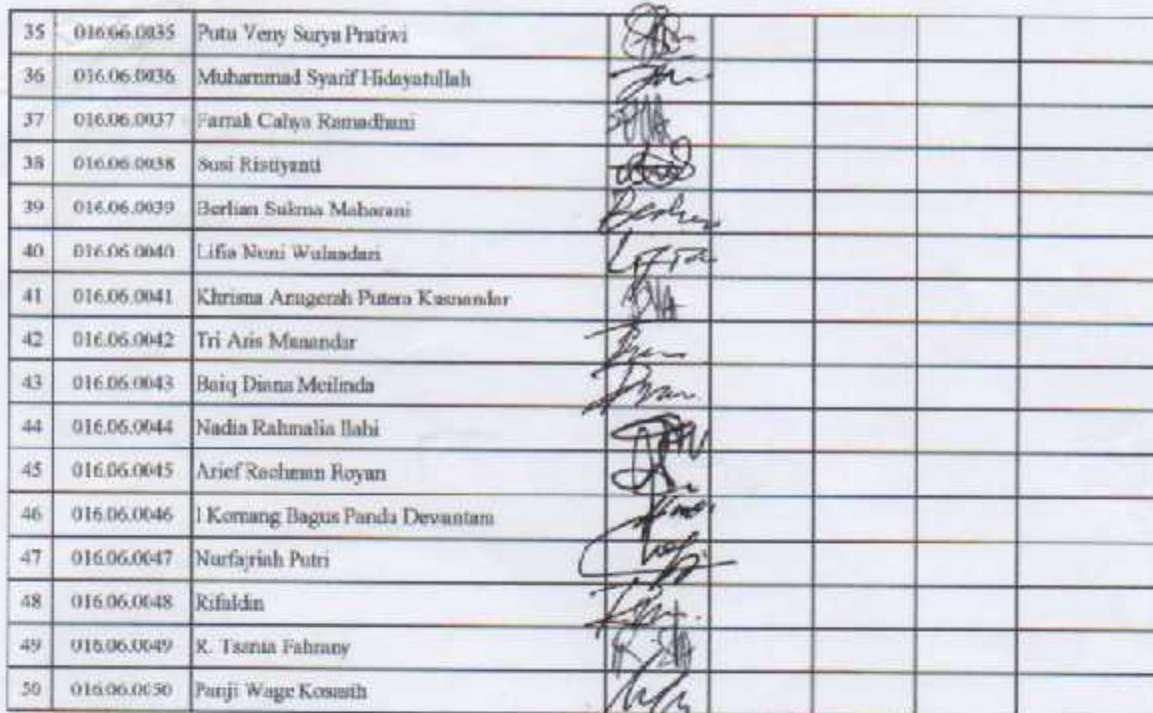 35 016.06.0035 Putu Veny Surya Pratiwi
36 016.06.0036 Muhammad Syarif Hidayatullah
37 016.06.0037 Farrah Cahya Ramadhani
38 016.06.0038 Susi Ristiyanti
39 016.06.0039 Berlian Sukma Maharani
40 016.06.0040 Lifia Nuni Wulandari
41 016.06.0041 Khrisna Anugerah Putera Kasnandar
42 016.06.0042 Tri Aris Munandar
43 016.06.0043 Baiq Diana Meilinda
44 016.06.0044 Nadia Rahmalia Ilahi
45 016.06.0045 Arief Rachman Royan
46 016.06.0046 I Komang Bagus Panda
47 016.06.0047 Nurfajriah Putri
48 016.06.0048 Rifaldin
49 016.06.0049 R. Tsania Fahrany
50 016.06.0050 Panji Wage Kosasih